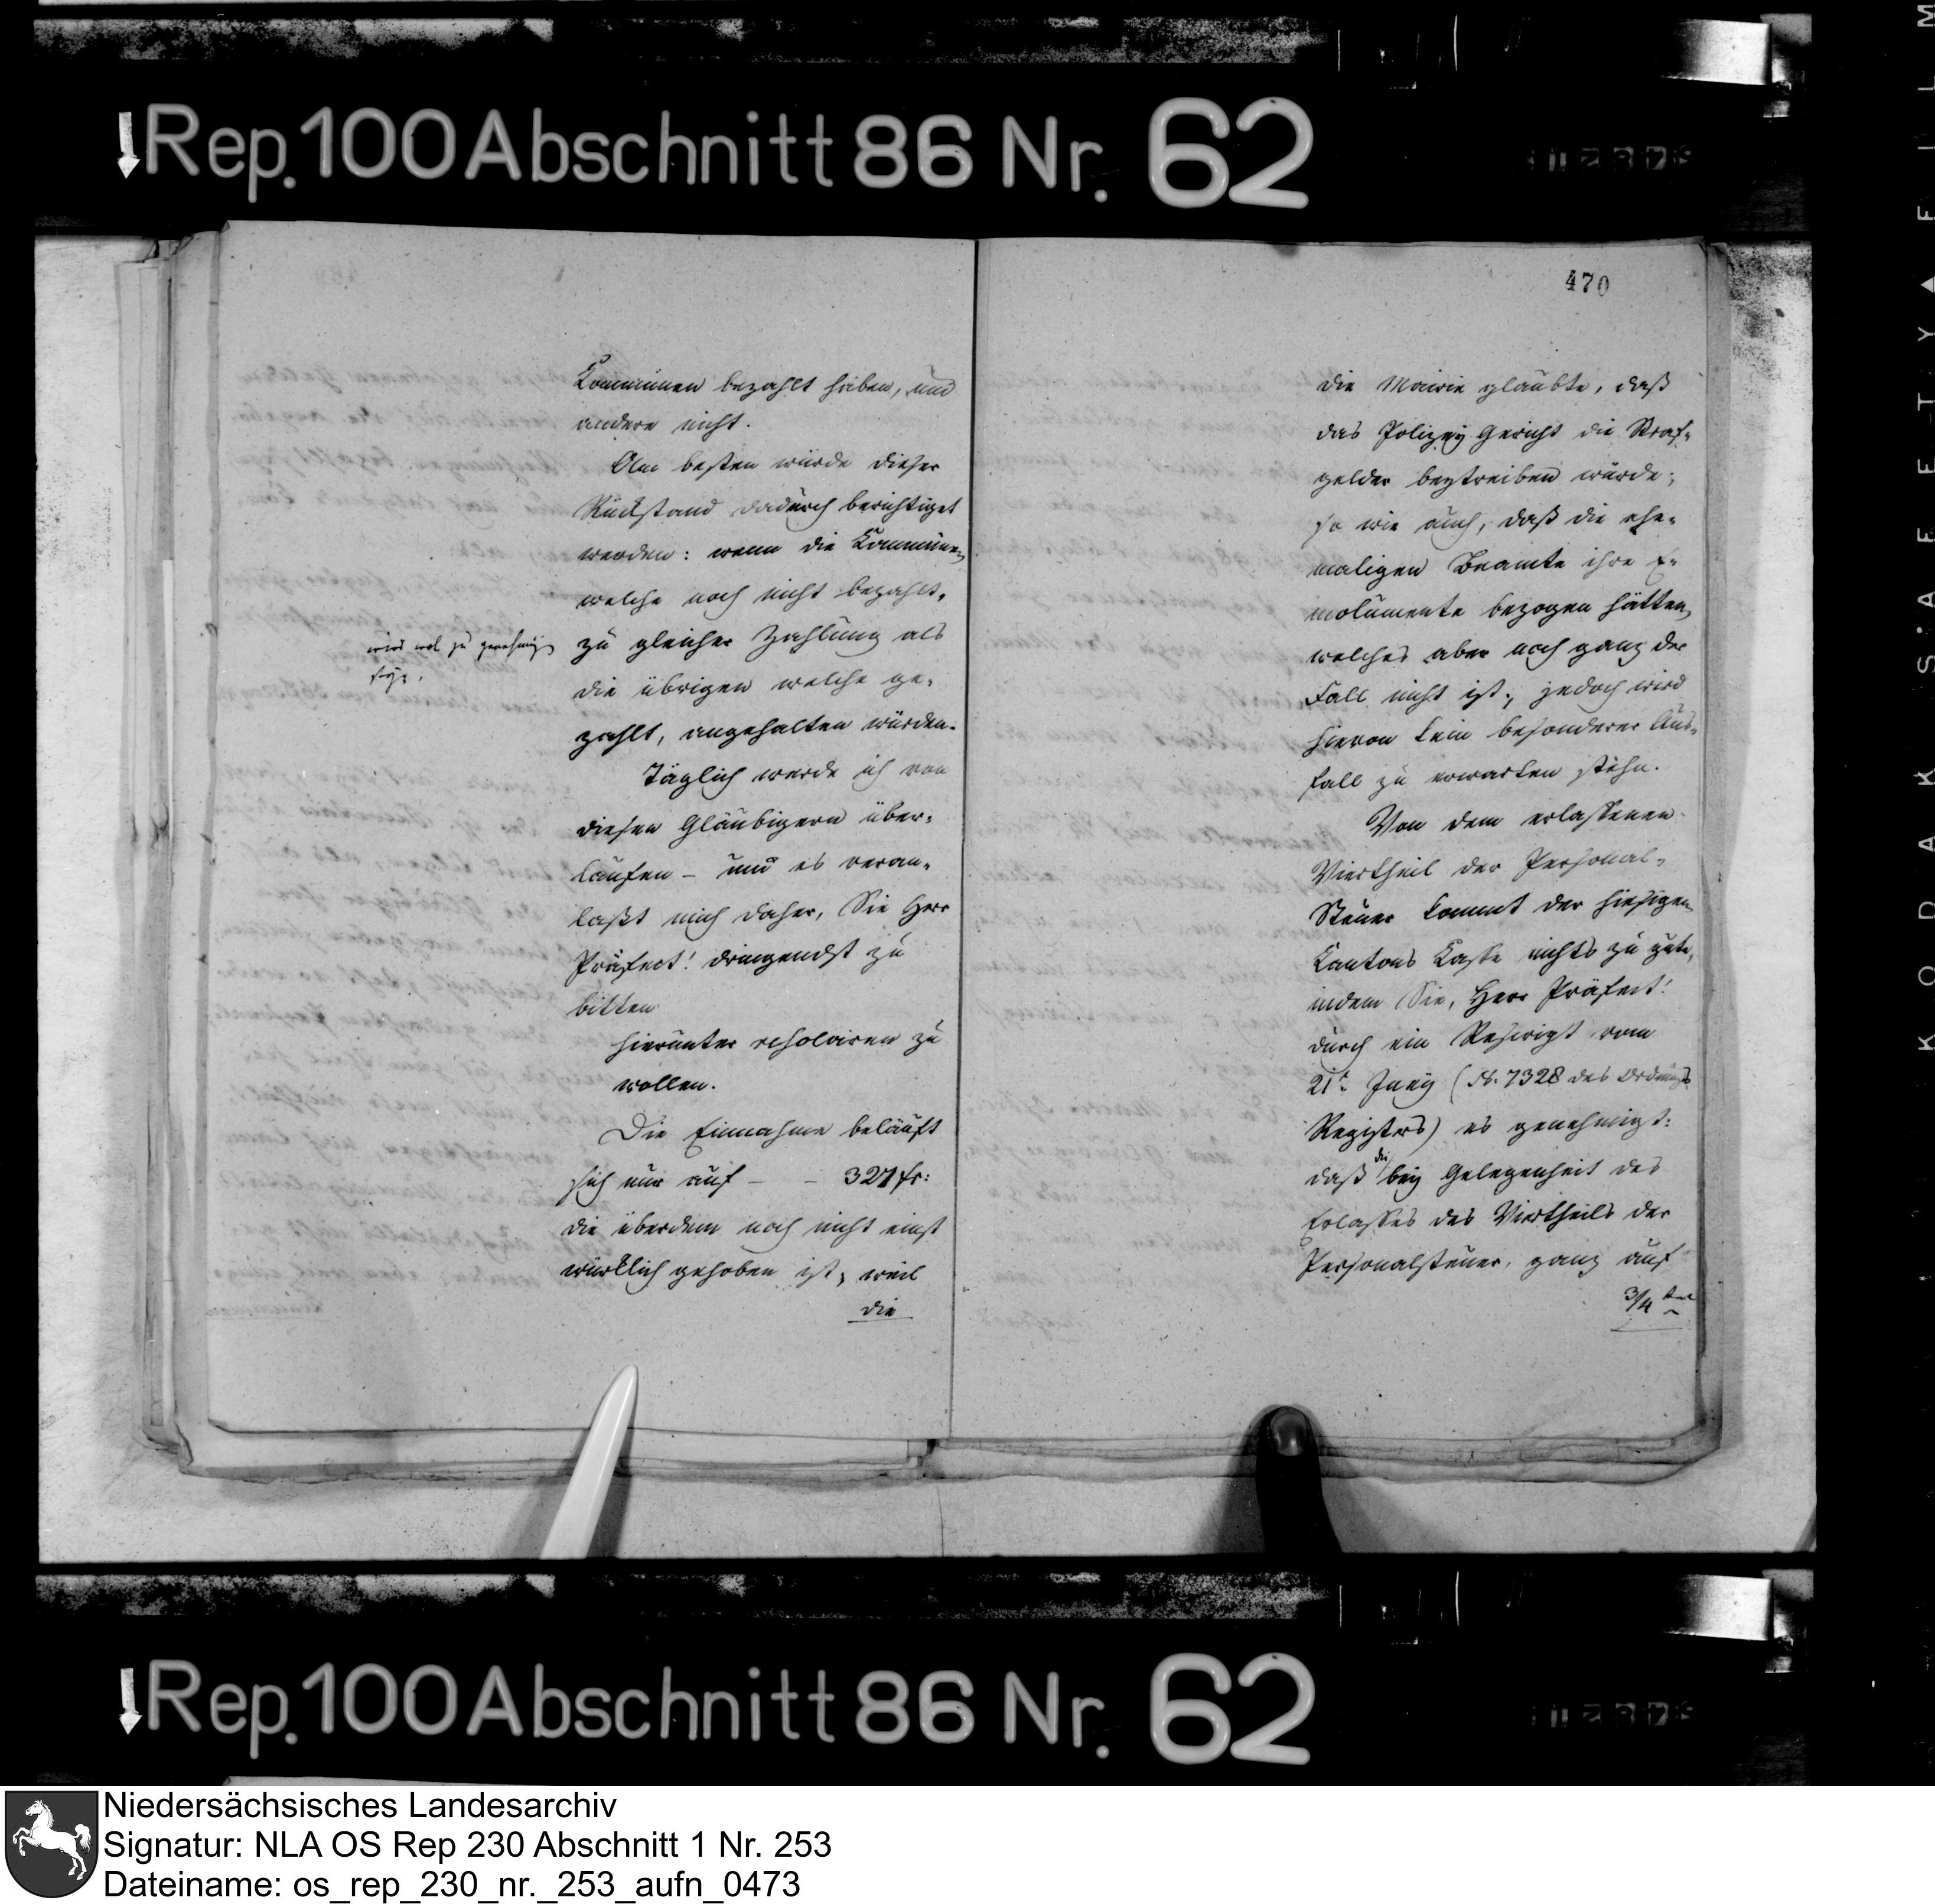 Rep. 100 Abschnitt 86 Nr. 62
470
Communen bezahlt haben, und
andere nicht.
Am besten würde dieser
Rückstand dadurch berichtiget
werden: wenn die Communen,
welche noch nicht bezahlt,
zu gleicher Zahlung als
die übrigen welche ge-
zahlt, angehalten würden.
wird wol zu genehmigen
seyn.
Täglich werde ich von
diesen Gläubigern über-
laufen – und es veran-
laßt mich daher, Sie Herr
Präfect! dringendst zu
bitten
hierunter resolviren zu
wollen.
Die Einnahme beläuft
sich nur auf – – 327 fr:
die überdem noch nicht einst
würklich gehoben ist, weil
die
die Mairie glaubte, daß
das Polizey Gericht die Straf-
gelder beytreiben würde;
so wie auch, daß die ehe-
maligen Beamte ihre E-
molumente bezogen hätten,
welches aber noch ganz der
Fall nicht ist; jedoch wird
hievon kein besonderer Aus-
fall zu erwarten stehn.
Von dem erlassenen
Viertheil der Personal-
Steuer kommt der hiesigen
Cantons Casse nichts zu gute,
indem Sie, Herr Präfect!
durch ein Rescript vom
21t Juny (N. 7328 des Ordnungs
Registers) es genehmigt:
daß die bey Gelegenheit des
Erlasses des Viertheils der
Personalsteuer, ganz auf
3/4
Rep. 100 Abschnitt 86 Nr. 62
KODAK SAFETY FILM
Niedersächsisches Landesarchiv
Signatur: NLA OS Rep 230 Abschnitt 1 Nr. 253
Dateiname: os_rep_230_nr._253_aufn_0473